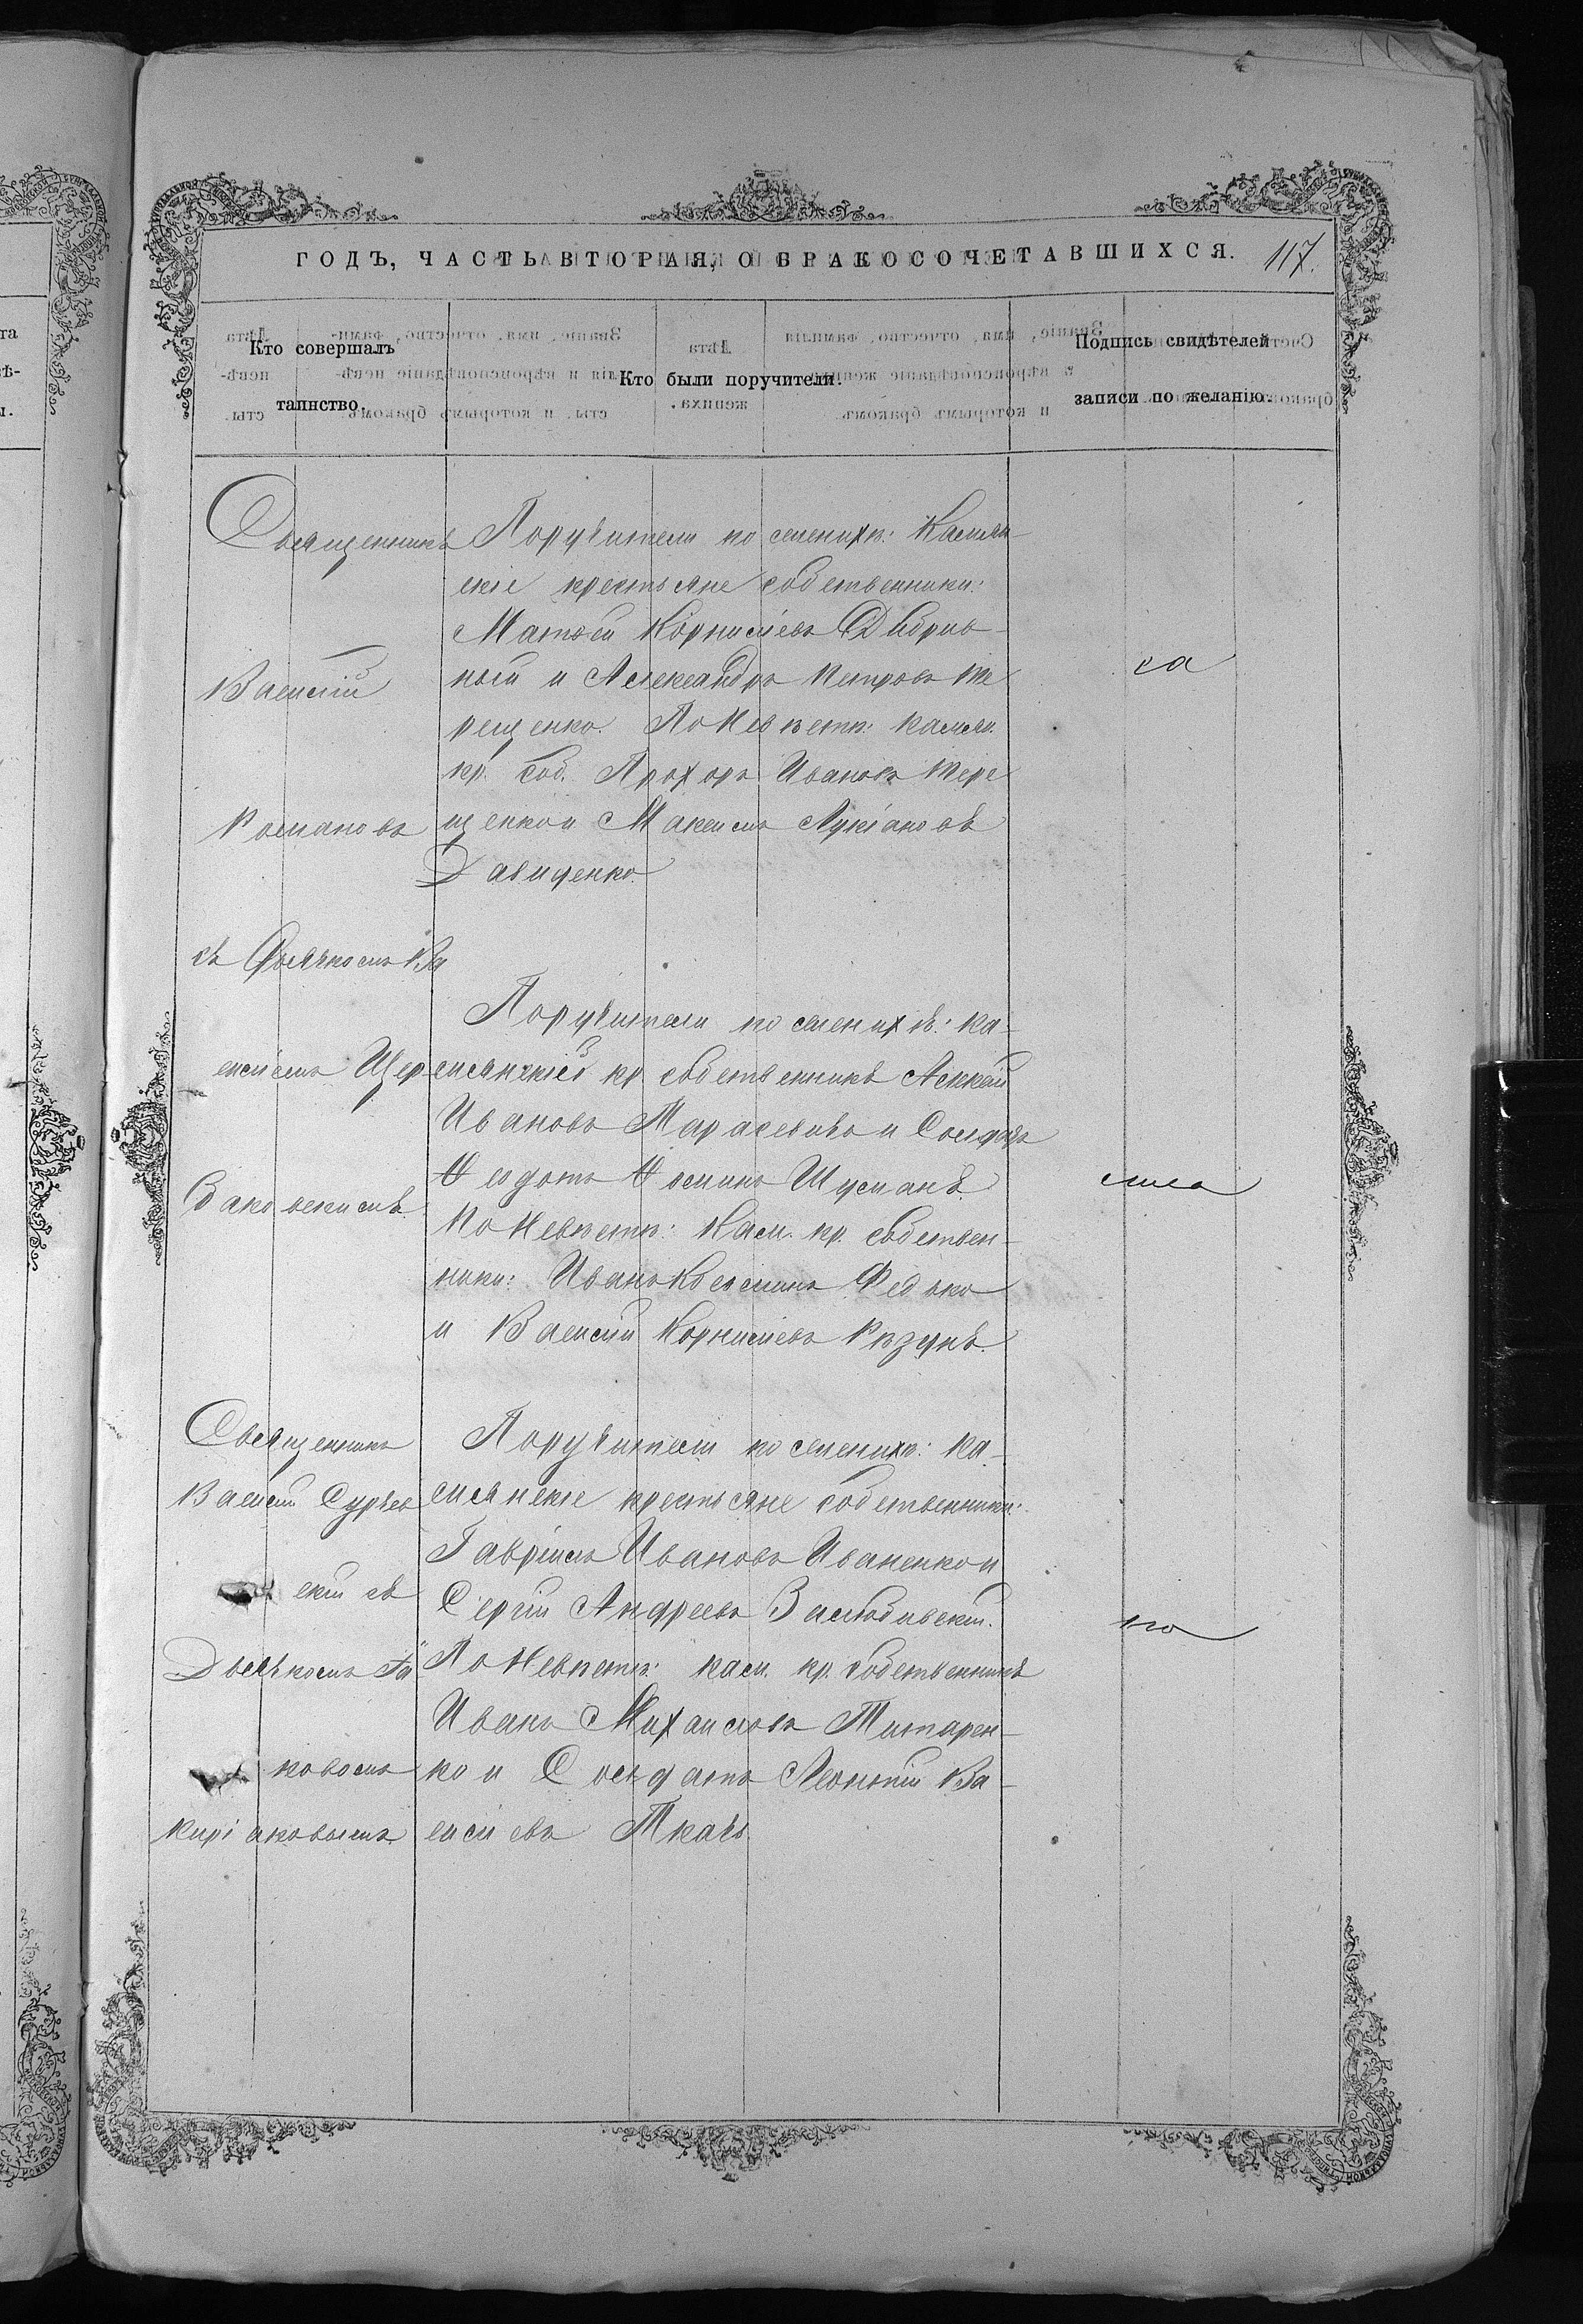 ГОДЪ, ЧАСТЬ ВТОРАЯ, О БРАКОСОЧЕТАВШИХСЯ. 117.
Кто совершалъ
таинство.
Кто были поручители.
Подпись свидѣтелей
записи по желанію.
Священникъ
Василій
Романовъ
съ Дьячкомъ Ва
силіемъ Щер
баковскимъ
Поручители по женихѣ: Камян
скіе крестьяне собственники:
Матѳей Корниліевъ
ный и Александръ Петровъ Те
рещенко. По Невѣстѣ: Камян.
кр. соб. Прохоръ Ивановъ Тере
щенко и Максимъ Лукіановъ
Давиденко.
Поручители по женихѣ: Ка-
мянскіе кр. собственникъ
Ивановъ и Солдатъ
Ѳедотъ Ѳоминъ Шуманъ.
По Невѣстѣ: Кам. кр. собствен-
ники: Иванъ Косминъ Федько
и Василій Корниліевъ Рѣзунъ.
Священникъ
Василій
скій съ
Дьячкомъ Іа
ковомъ
Киріаковымъ
Поручители по женихѣ: Ка-
мянскіе крестьяне собственники:
Гавріилъ Ивановъ Иваненко и
Сергій Андреевъ
По Невѣстѣ: кам. кр. собственникъ
Иванъ Михаиловъ Титарен-
ко и Солдатъ Леонтій Ва-
силіевъ Ткачъ.